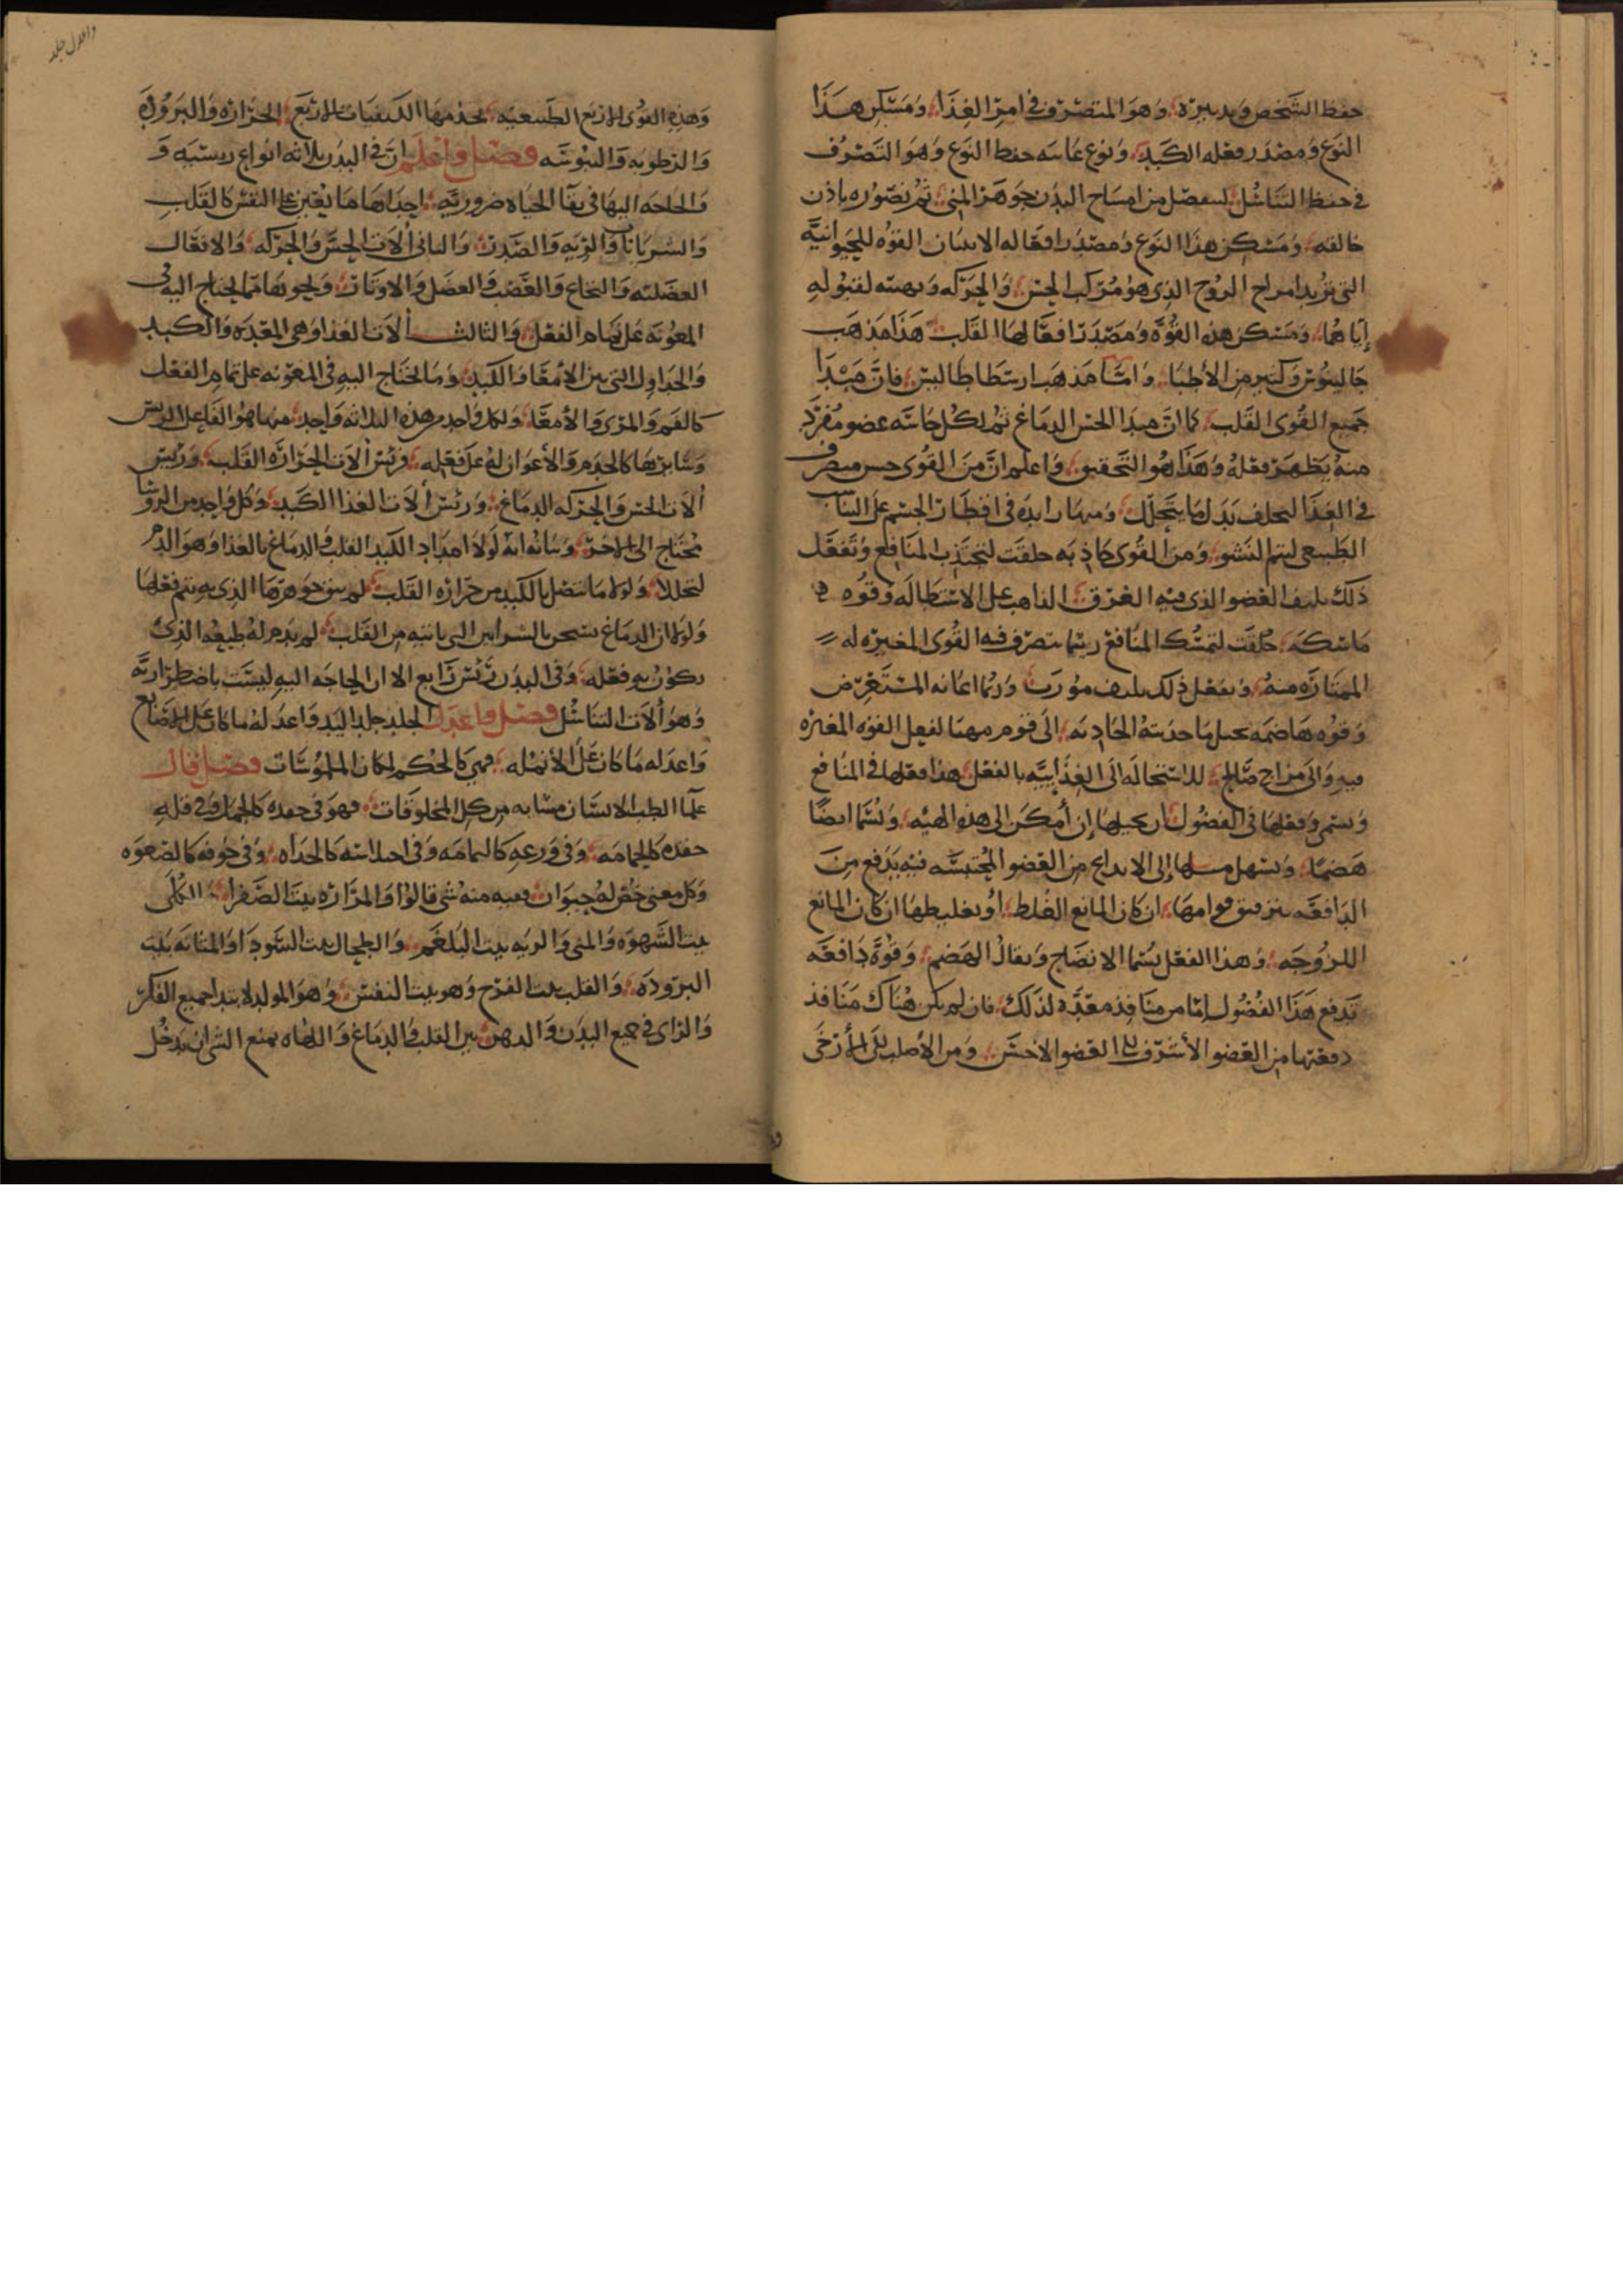 حفظ الشخص وتدبيره وهو المتصرف في امر الغذا ومسكن هذا
النوع ومصدر فعله الكبد ونوع غايته حفظ النوع وهو التصرف
في حفظ التناسل ليفصل من امشاج البدن جوهر المني ثم يصوره باذن
خالقه ومسكن هذا النوع ومصدر افعاله الانثيان القوه الحيوانية
التي تدبر امر الروح الذي هو مركب الحس والحركه وتهيئه لقبوله
إياهما ومسكن هذه القوة ومصدر افعالها القلب هذا مذهب
جالينوس وكثير من الأطبا وامّا مذهب ارسطاطاليس فان مبدا
جميع القوى القلب كما انّ مبدا الحس الدماغ ثم لكل حاسّه عضو مفرد
منه يظهر فعله وهذا هو التحقيق واعلم انّ من القوى
في الغذا ليخلف بدل ما يتحلّل ومنها زايده في اقطار الجسم على التناسب
الطبيعي ليتم النشو ومن القوى جاذبه خلقت لتجتذب المنافع وتفعل
ذلك بليف العضو الذي فيه الذاهب على الاستطاله وقوه
ماسكه خلقت لتمسك المنافع ريثما تتصرف فيه القوى المغيره له
الممتازه منه وتفعل ذلك بليف مورب وربما اعانه المستعرض
وقوه هاضمه تحيل ما جذبته الجاذبه الى قوام مهيّا لفعل القوه المغيره
فيه والى مزاج صالح للاستحاله الى الغذاييّه بالفعل هذا فعلها في المنافع
ويسمى وفعلها في الفضول ان تحيلها إن أمكن الى هذه الهيئه ويسما ايضا
هضمًا ويسهل سبيلها إلى الاندفاع من العضو المحتبسه فيه بدفع من
الدافعه بترقيق قوامها ان كان المانع الغلظ أو بتغليظها ان كان المانع
اللزوجه وهذا الفعل يسما الانضاج ويقال الهضم وقوة دافعه
تدفع هذا الفضول امّا من منافذ معدّه لذلك فان لم يكن هناك منافذ
دفعتها من العضو الأشرف الى العضو الاخسّ ومن الأصلب الى الأرخى
واعدل جلد
وهذه القوى الاربع الطبيعيه تخدمها الكيفيات الاربع الحراره والبروده
والرطوبه واليبوسه فصل واعلم ان في البدن ثلاثه انواع رييسيه و
والحاجه اليها في بقا الحياه ضرورية احداها ما يعين على النفس كالقلب
والشريانات والريه والصدر والثاني ألات الحس والحركه والافعال
العضليه والنخاع والعصب والعضل والاوتار ونحوها مما يحتاج اليه في
المعونه على تمام الفعل والثالث ألات الغذا وهي المعده والكبد
والجداول التي بين الأمعا والكبد وما يحتاج اليه في المعونه على تمام الفعل
كالفم والمرى والأمعا ولكل واحد من هذه الثلاثه واحد منها هو الفاعل الرييس
وسايرها كالخدم والأعوان له على فعله ورئيس ألات الحراره القلب ورئيس
ألات الحس والحركه الدماغ ورئيس ألات الغذا الكبد وكل واحد من الروسا
محتاج الى الاخر وبيانه انه لولا امداد الكبد القلب والدماغ بالغذا وهو الدم
لتحللا ولولا ما يتصل بالكبد من حراره القلب لم يبق جوهرها الذي به يتم فعلها
ولولا ان الدماغ يسخن بالشرايين التي ياتيه من القلب لم يدم له طبعه الذي
يكون به فعله وفي البدن رئيس رابع الا ان الحاجه اليه ليست باضطراريه
وهو ألات التناسل فصل واعدل الجلد جلد اليد واعدله ما كان على الاصابع
واعدله ما كان على الأنمله فهي كالحكم لمكان الملموسات فصل قال
علما الطب الانسان مشابه من كل المخلوقات فهو في حقده كالجمل وفي قله
حقده كالحمامه وفي ورعه كاليمامه وفي اختلاسه كالحداه وفي خوفه كالصعوه
وكل معنى خص له حيوان ففيه منه شي قالوا والمراره بيت الصفرا والكلى
بيت الشهوه والمني والريه بيت البلغم والطحال بيت السودا والمثانه بيت
البروده والقلب بيت الفرح وهو بيت النفس وهو المولد لابتدا جميع الفكر
والراى في جميع البدن والذهن بين القلب والدماغ واللهاه تمنع الشى ان يدخل